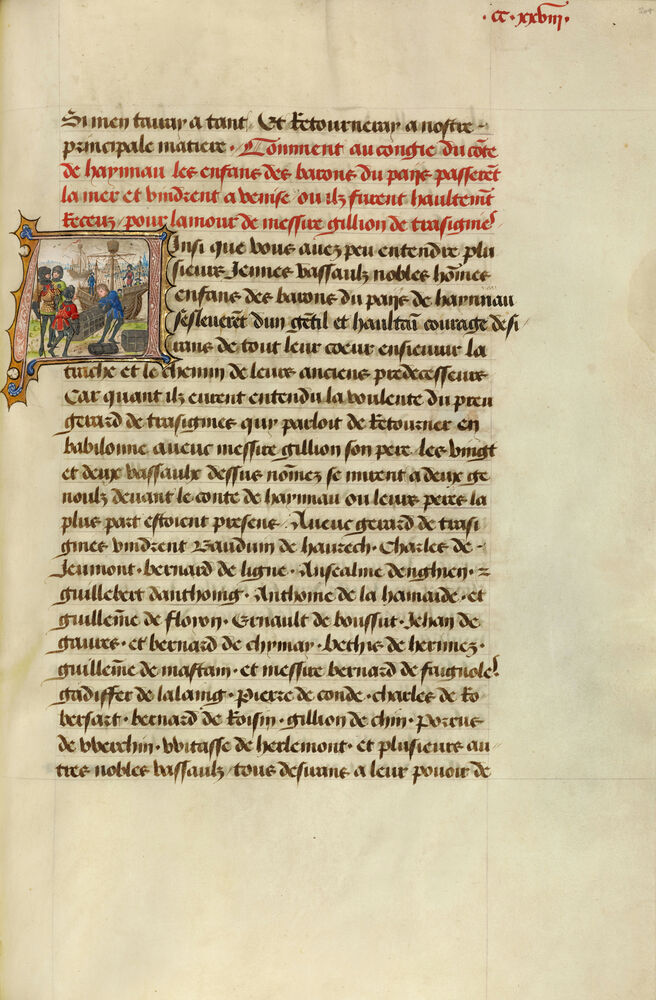 .CC.xxviii.
Si men tauray a tant / Et Retourneray a nostre -
principale matiere . Comment au congie du cōte
de haynnau les enfans des barons du pays passerēt
la mer et vindrent a venise / ou ilz furent haultemt
Receuz / pour lamour de messire gillion de trasignes
Ainsi que vous avez peu entendre plu
sieurs Jennes vassaulz nobles hōmes
enfans des barons du pays de haynnau
sesleverēt dun gētil et haultaī courage desi
rans de tout leur coeur ensievuir la
trache et le chemin de leurs anciens predecesseurs
Car quant ilz eurent entendu la voulente du preu
gerard de trasignies quy parloit de Retourner en
babilonne avecuc messire gillion son pere / les vingt
et deux vassaulx dessus nōmez se mirent a deux ge
noulz devant le conte de haynnau ou leurs peres la
plus part estoient presens / Avecuc gerard de trasi
gnies vindrent Bauduin de havrech . Charles de -
Jeumont . bernard de ligne . Ansealme denghien .
guillebert danthoing . Anthoine de la hamaide . et
guillēme de floyon . Ernault de boussut . Jehan de
gavres . et bernard de chymay . bethis de hermez .
guillēme de mastain . et messire bernard de faignoles
gadiffer de lalaing . Pierre de conde . charles de Ro
bersart . bernard de Roisin . gillion de chin . Porrus
de werchin . witasse de herlemont . et plusieurs au
tres nobles vassaulz / tous desirans a leur pouoir de